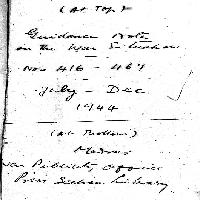 (At Top)
Guidance Notes
on the War Situation
Nos 416 - 467
July - Dec
1944
(At Bottom)
Madras
War Publicity Office
Press Section Library